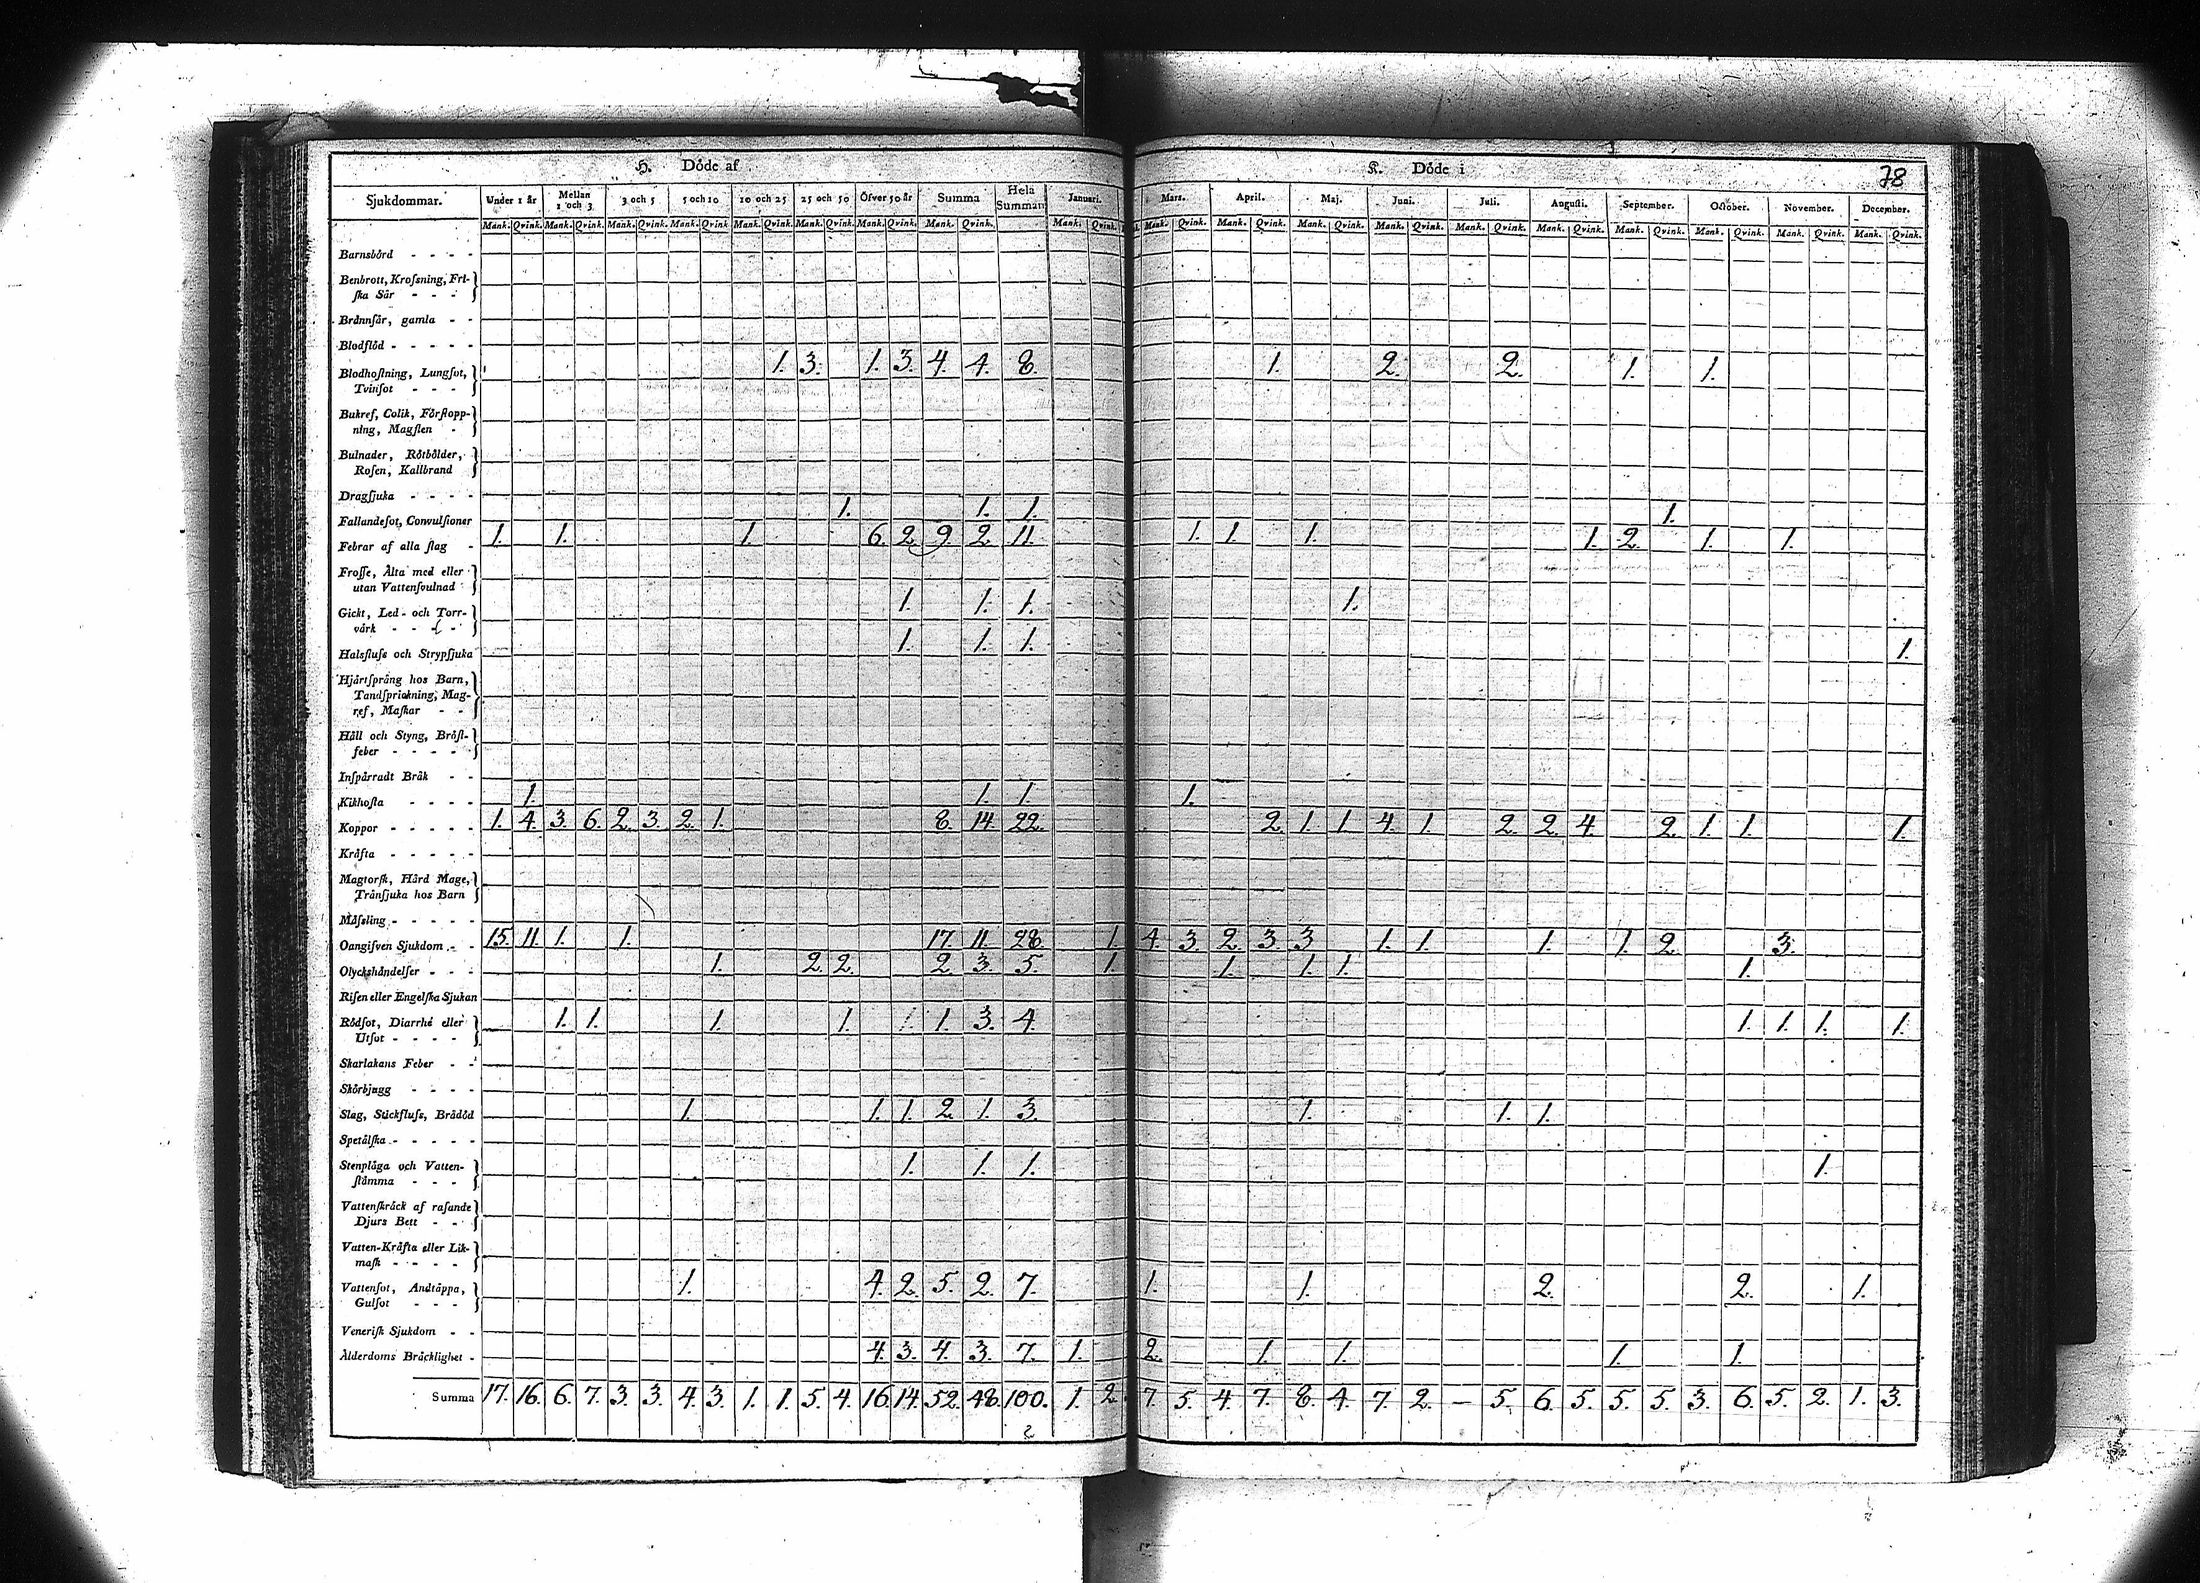 H. Döde af
K. Döde i
78
Sjukdommar. Under 1 år Mellan 1 och 3 3 och 5 5 och 10 10 och 25 25 och 50 Öfver 50 år Summa Hela Summan Januari. Mars. April. Maj. Juni. Juli. Augusti. September. October. November. December.
Mank. Qvink. Mank. Qvink. Mank. Qvink. Mank. Qvink. Mank. Qvink. Mank. Qvink. Mank. Qvink. Mank. Qvink. Mank. Qvink. Mank. Qvink. Mank. Qvink. Mank. Qvink. Mank. Qvink. Mank. Qvink. Mank. Qvink. Mank. Qvink. Mank. Qvink. Mank. Qvink. Mank. Qvink.
Barnsbörd
Benbrott, Krofsning, Fri-
ska Sår
Brännsår, gamla
Blodflöd
Blodhostning, Lungsot,
Tvinsot 1. 3. 1. 3. 4. 4. 8. 1. 2. 2. 1. 1.
Bukref, Colik, Förstopp-
ning, Magsten
Bulnader, Rötbölder,
Rosen, Kallbrand
Dragsjuka
Fallandesot, Convulsioner 1. 1. 1. 1.
Febrar af alla slag 1. 1. 1. 6. 2. 9. 2. 11. 1. 1. 1. 1. 2. 1. 1.
Frosse, Älta med eller
utan Vattensvulnad
Gickt, Led- och Torr-
värk 1. 1. 1. 1.
Halsflufs och Strypsjuka 1. 1. 1. 1.
Hjärtsprång hos Barn,
Tandsprickning, Mag-
ref, Maskar
Håll och Styng, Bröst-
feber
Inspärradt Bråk
Kikhosta 1. 1. 1. 1.
Koppor 1. 4. 3. 6. 2. 3. 2. 1. 8. 14. 22. 2. 1. 1. 4. 1. 2. 2. 4. 2. 1. 1. 1.
Kräfta
Magtorsk, Hård Mage,
Trånsjuka hos Barn
Måfsling
Oangifven Sjukdom 15. 11. 1. 1. 17. 11. 28. 1. 4. 3. 2. 3. 3 1. 1. 1. 1. 2. 3.
Olyckshändelser 1. 2. 2. 2. 3. 5. 1. 1. 1. 1. 1.
Risen eller Engelska Sjukan
Rödsot, Diarrhé eller
Utsot 1. 1. 1. 1. 1. 1. 3. 4. 1. 1. 1. 1.
Skarlakans Feber
Skörbjugg
Slag, Stickflufs, Brådöd 1. 1. 1. 2. 1. 3. 1. 1. 1.
Spetälska
Stenplåga och Vatten-
stämma 1. 1. 1. 1.
Vattenskräck af rasande
Djurs Bett
Vatten-Kräfta eller Lik-
mask
Vattensot, Andtäppa,
Gulsot 1. 4. 2. 5. 2. 7. 1. 1. 2. 2. 1.
Venerisk Sjukdom
Ålderdoms Bräcklighet 4. 3. 4. 3. 7. 1. 2. 1. 1. 1. 1.
Summa 17. 16. 6. 7. 3. 3. 4. 3. 1. 1. 5. 4. 16. 14. 52. 48. 100. 1. 2. 7. 5. 4. 7. 8. 4. 7. 2. – 5. 6. 5. 5. 5. 3. 6. 5. 2. 1. 3.